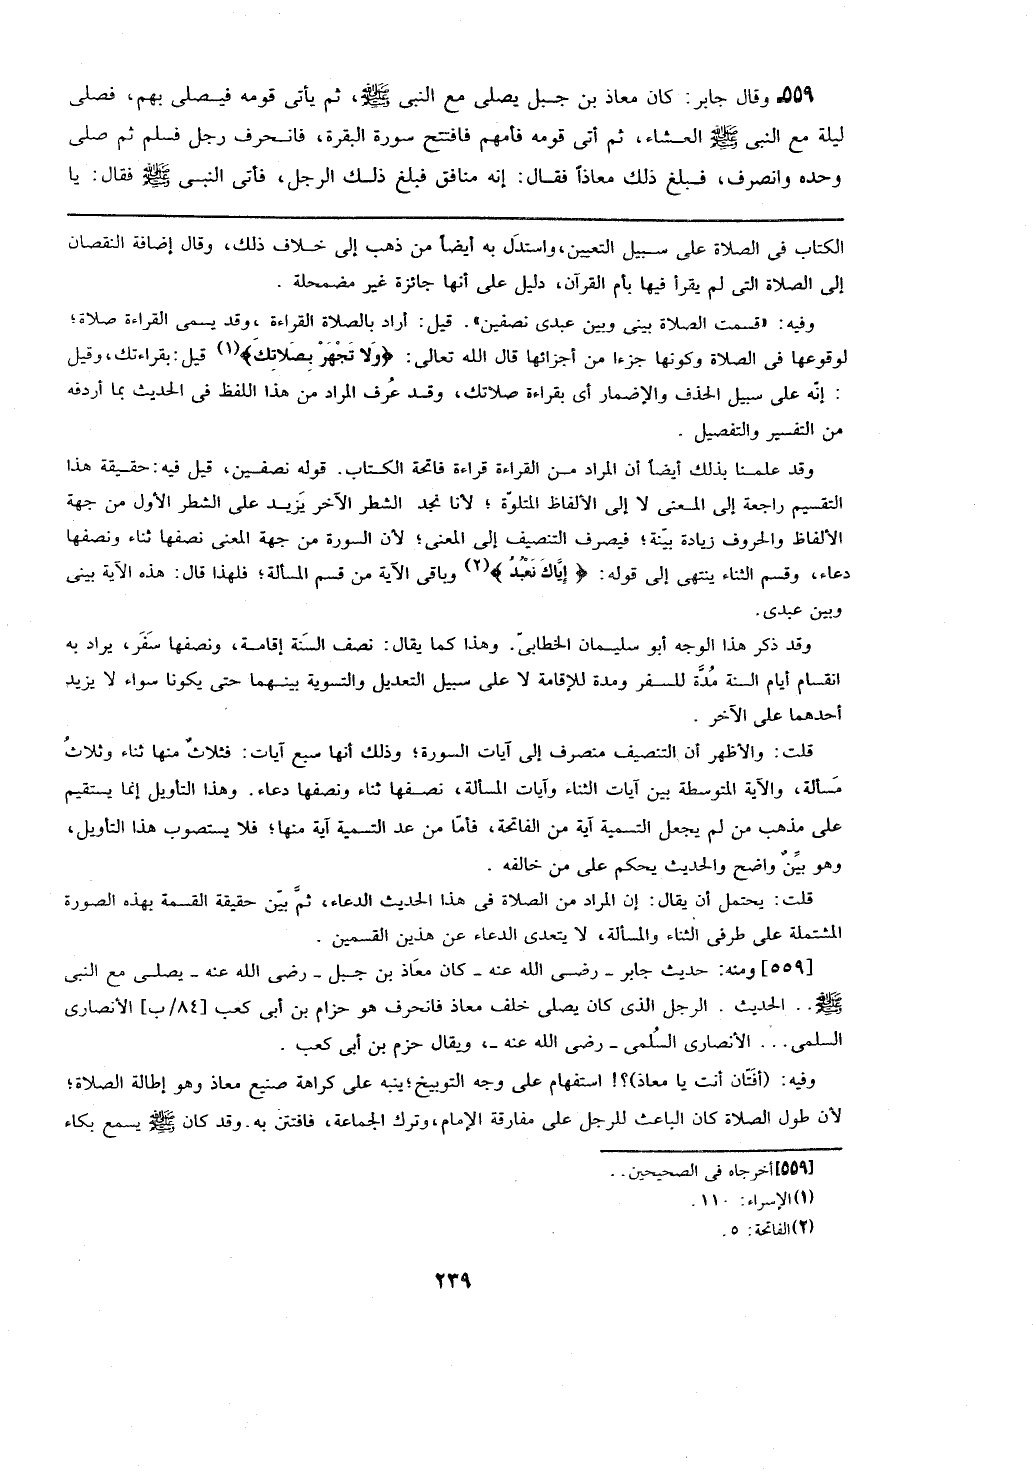 ٥٥٩ـ وقال جابر: كان معاذ بن جبل يصلى مع النبى ﷺ، ثم يأتى قومه فيصلى بهم، فصلى
ليلة مع النبى ﷺ العشاء، ثم أتى قومه فأمهم فافتتح سورة البقرة، فانحرف رجل فسلم ثم صلى
وحده وانصرف، فبلغ ذلك معاذاً فقال: إنه منافق فبلغ ذلك الرجل، فأتى النبى ﷺ فقال: يا
الكتاب فى الصلاة على سبيل التعيين، واستدَل به أيضاً من ذهب إلى خلاف ذلك، وقال إضافة النقصان
إلى الصلاة التى لم يقرأ فيها بأم القرآن، دليل على أنها جائزة غير مضمحلة .
وفيه: «قسمت الصلاة بينى وبين عبدى نصفين». قيل: أراد بالصلاة القراءة ،وقد يسمى القراءة صلاة؛
لوقوعها فى الصلاة وكونها جزءا من أجزائها قال الله تعالى: ﴿وَلا تَجْهَرْ بِصَلاتِكَ﴾(١) قيل: بقراءتك، وقيل
: إنّه على سبيل الحذف والإضمار أى بقراءة صلاتك، وقد عُرف المراد من هذا اللفظ فى الحديث بما أردفه
من التفسير والتفصيل .
وقد علمنا بذلك أيضاً أن المراد من القراءة قراءة فاتحة الكتاب. قوله نصفين، قيل فيه: حقيقة هذا
التقسيم راجعة إلى المعنى لا إلى الألفاظ المتلوّة ؛ لأنا نجد الشطر الآخر يَزيد على الشطر الأول من جهة
الألفاظ والحروف زيادة بيّنة؛ فيصرف التنصيف إلى المعنى؛ لأن السورة من جهة المعنى نصفها ثناء ونصفها
دعاء، وقسم الثناء ينتهى إلى قوله: ﴿ إِيَّاكَ نَعْبُدُ ﴾(٢) وباقى الآية من قسم المسألة؛ فلهذا قال: هذه الآية بينى
وبين عبدى.
وقد ذكر هذا الوجه أبو سليمان الخطابىّ. وهذا كما يقال: نصف السَنة إقامة، ونصفها سَفَر، يراد به
انقسام أيام السنة مُدَّة للسفر ومدة للإقامة لا على سبيل التعديل والتسوية بينهما حتى يكونا سواء لا يزيد
أحدهما على الآخر .
قلت: والأظهر أن التنصيف منصرف إلى آيات السورة؛ وذلك أنها سبع آيات: فثلاثٌ منها ثناء وثلاثُ
مَسألة، والآية المتوسطة بين آيات الثناء وآيات المسألة، نصفها ثناء ونصفها دعاء. وهذا التأويل إنما يستقيم
على مذهب من لم يجعل التسمية آية من الفاتحة، فأمّا من عد التسمية آية منها؛ فلا يستصوب هذا التأويل،
وهو بيِّنٌ واضح والحديث يحكم على من خالفه .
قلت: يحتمل أن يقال: إن المراد من الصلاة فى هذا الحديث الدعاء، ثمَّ بيّن حقيقة القسمة بهذه الصورة
المشتملة على طرفى الثناء والمسألة، لا يتعدى الدعاء عن هذين القسمين .
[٥٥٩] ومنه: حديث جابر ـ رضى الله عنه ـ كان معَاذ بن جبل ـ رضى الله عنه ـ يصلى مع النبى
ﷺ. . الحديث . الرجل الذى كان يصلى خلف معاذ فانحرف هو حزام بن أبى كعب [٨٤/ب] الأنصارى
السلمى. . . الأنصارى السُلمى ـ رضى الله عنه ـ، ويقال حزم بن أبى كعب .
وفيه: (أفَتّان أنت يا معاذ)؟! استفهام على وجه التوبيخ؛ ينبه على كراهة صنيع معاذ وهو إطالة الصلاة؛
لأن طول الصلاة كان الباعث للرجل على مفارقة الإمام، وترك الجماعة، فافتتن به. وقد كان ﷺ يسمع بكاء
[٥٥٩] أخرجاه فى الصحيحين . .
(١) الإسراء: ١١٠ .
(٢) الفاتحة: ٥ .
٢٣٩